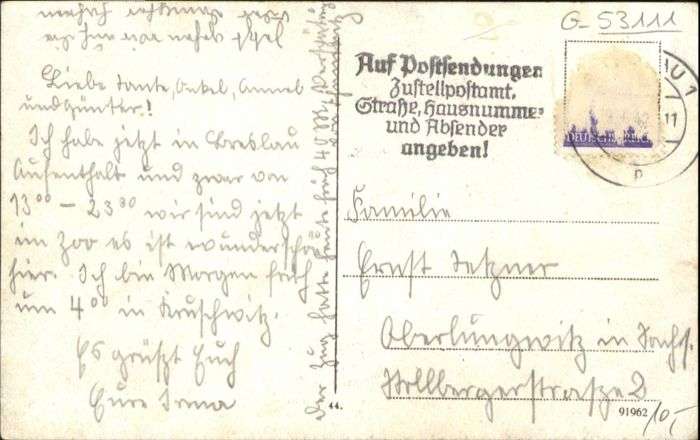 Liebe Tante, Onkel, Anneb
und Günter!
Ich habe jetzt in Breslau
Aufenthalt und zwar von
13⁰⁰ - 23³⁰ wir sind jetzt
im Zoo es ist wunderschön
hier. Ich bin Morgen früh
um 4⁰⁰ in Kruschwitz.
Es grüszt Euch
Eure Irma
Der Zug hatte heute früh 40 M.
44.
G-53111
Auf Postsendungen
Zustellpostamt,
Straße, Hausnummer
und Absender
angeben!
AU 1
11
DEUTSCHES REICH
Familie
Ernst Tetzner
Oberlungwitz in Sachs.
Hollbergerstrasze 2
91962
10,-